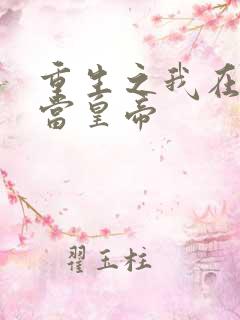 重生之我在
当皇帝
翟玉柱